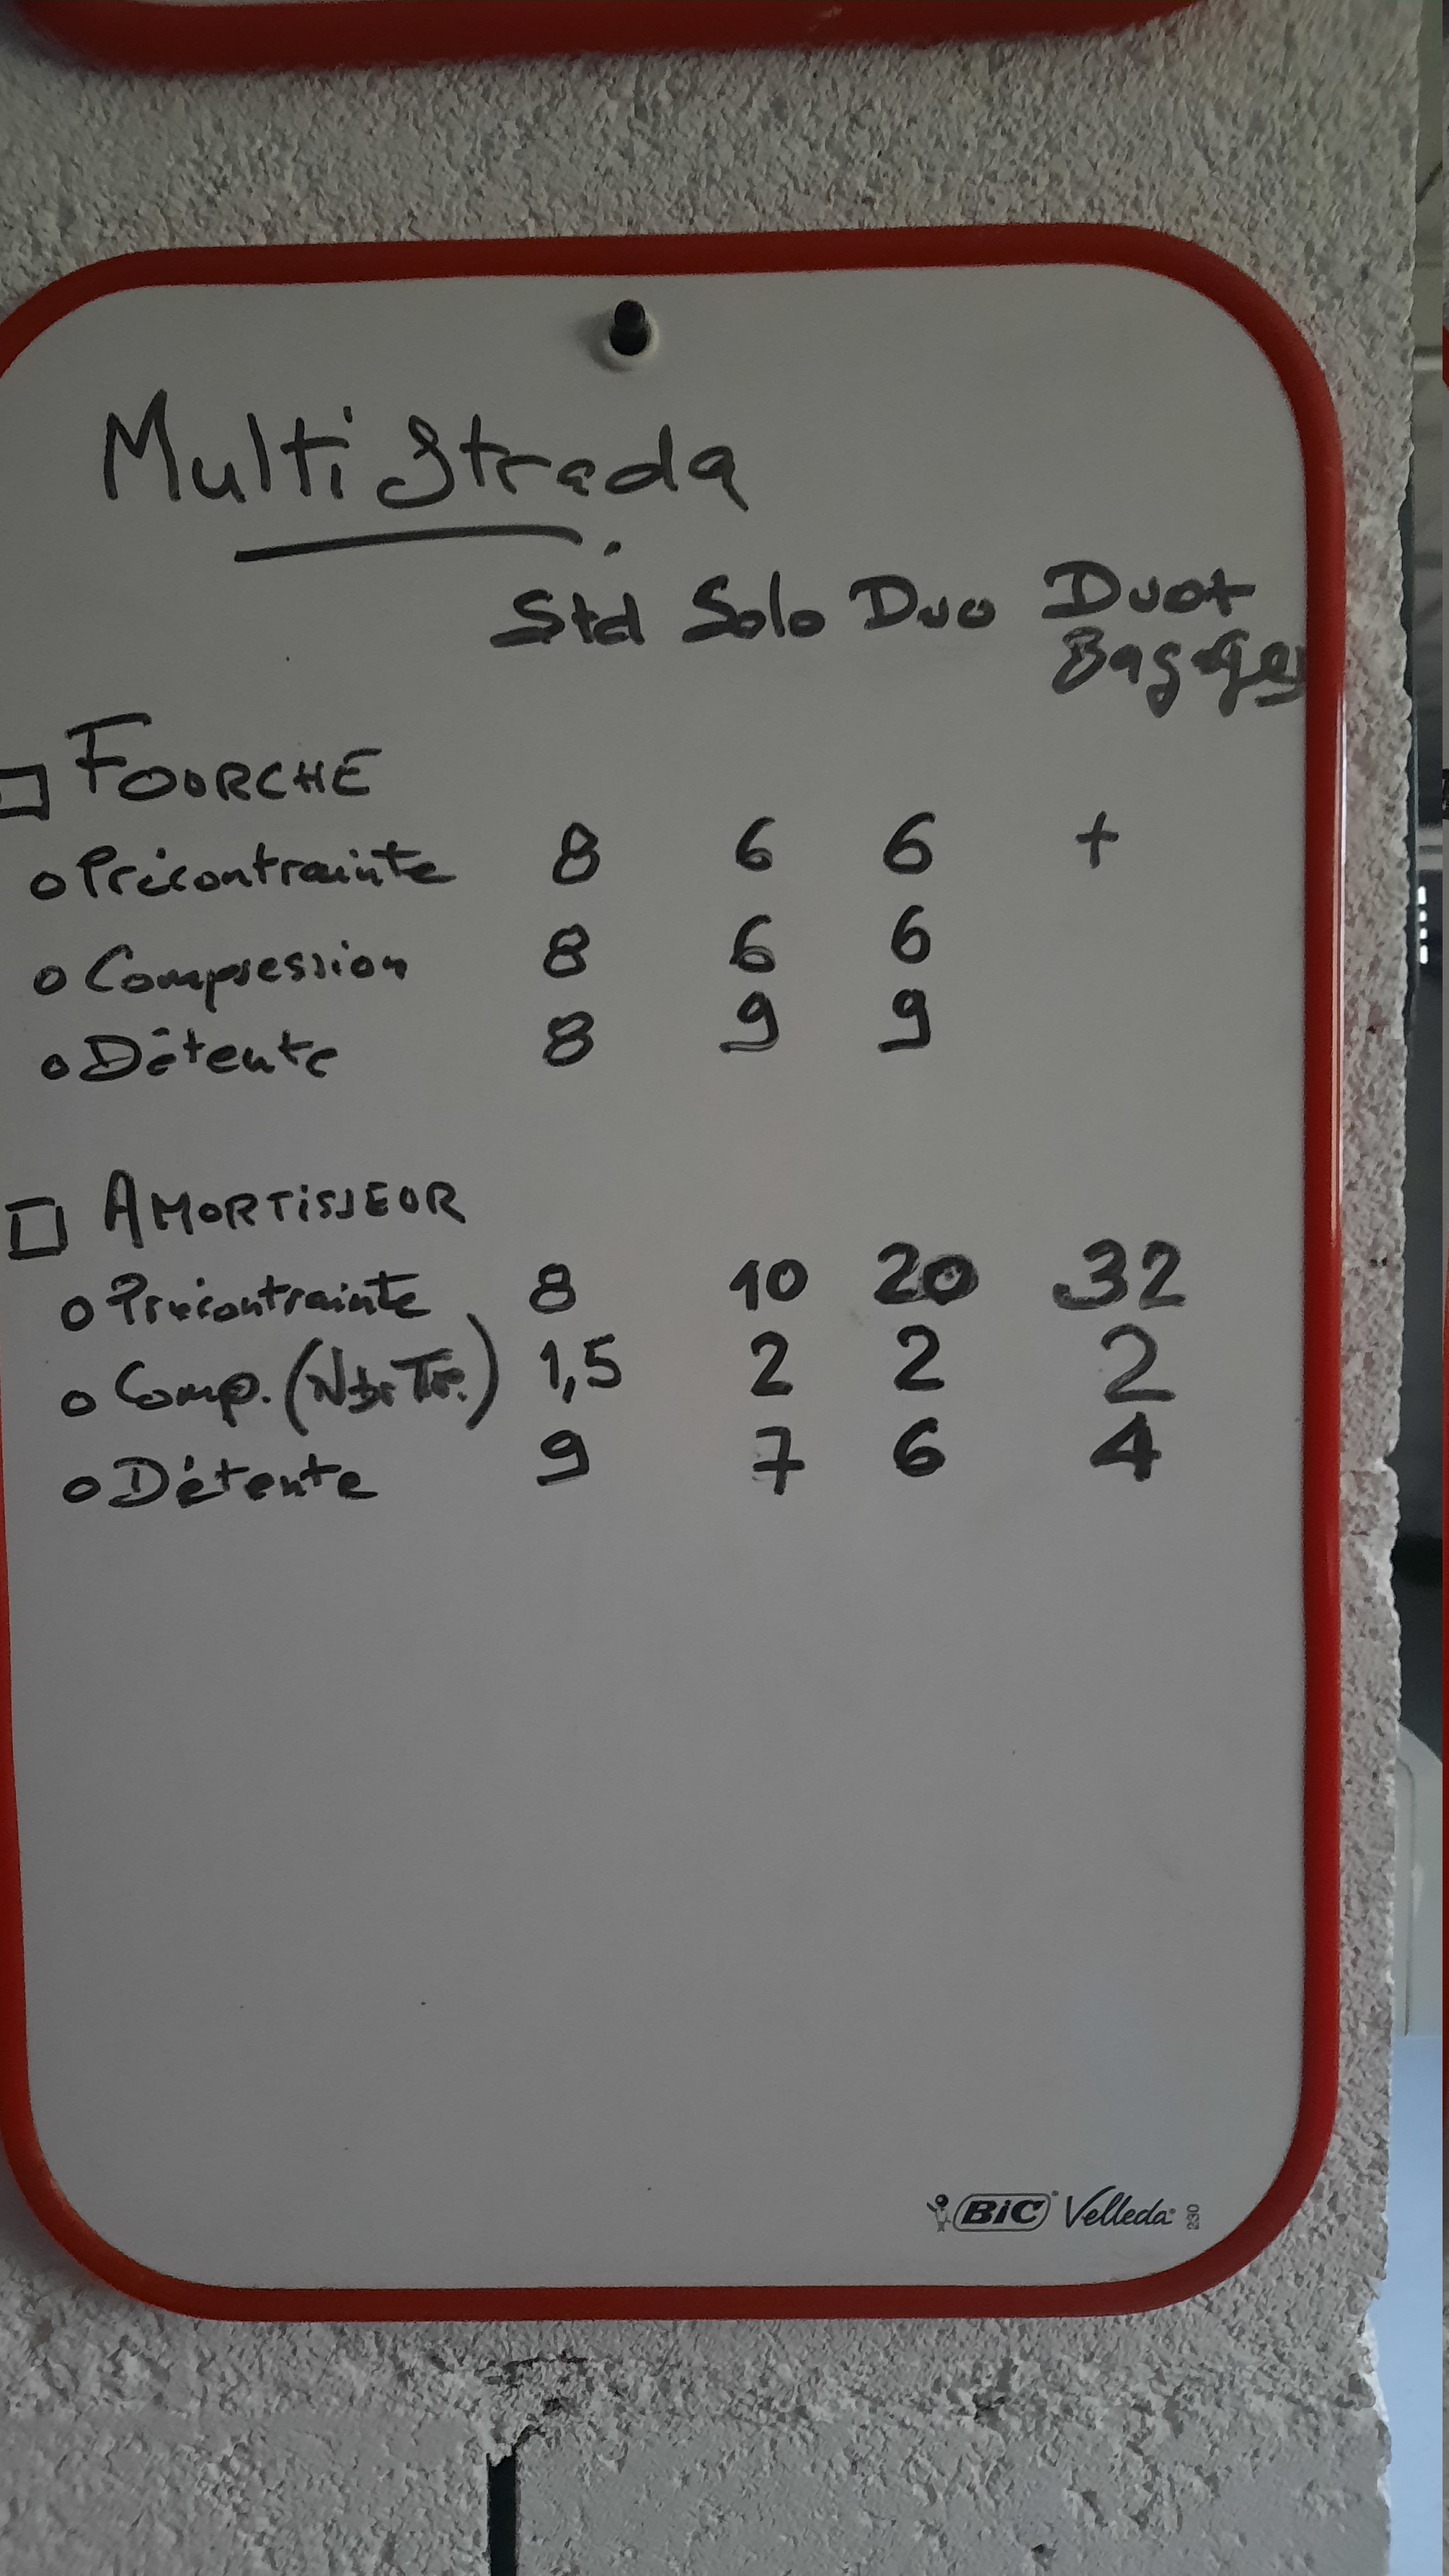 Multistrada
Std Solo Duo Duo+ Bagages
□ FOURCHE
o Précontrainte 8 6 6 +
o Compression 8 6 6
o Détente 8 9 9
□ AMORTISSEUR
o Précontrainte 8 10 20 32
o Comp. (Nbr Tr.) 1,5 2 2 2
o Détente 9 7 6 4
BIC Velleda 230